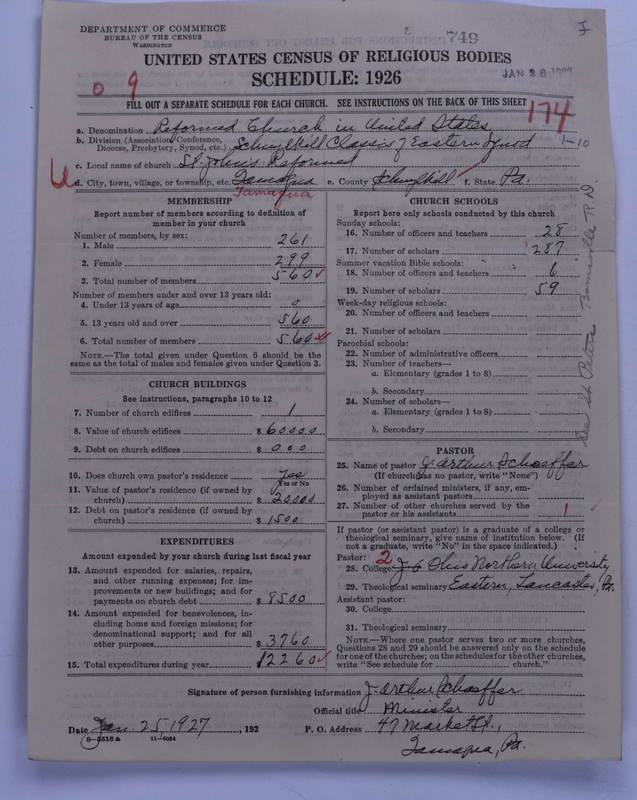 DEPARTMENT OF COMMERCE
BUREAU OF THE CENSUS
WASHINGTON
749
UNITED STATES CENSUS OF RELIGIOUS BODIES
SCHEDULE: 1926
JAN 28 1927
0 9
FILL OUT A SEPARATE SCHEDULE FOR EACH CHURCH. SEE INSTRUCTIONS ON THE BACK OF THIS SHEET
174
a. Denomination Reformed Church in United States
b. Division (Association, Conference, Diocese, Presbytery, Synod, etc.) Schuylkill Classis of Eastern Synod
1-10
c. Local name of church St. John's Reformed
d. City, town, village, or township, etc. Tamaqua e. County Schuylkill f. State Pa.
Tamaqua
MEMBERSHIP
Report number of members according to definition of
member in your church
Number of members, by sex:
1. Male 261
2. Female 299
3. Total number of members 560
Number of members under and over 13 years old:
4. Under 13 years of age 0
5. 13 years old and over 560
6. Total number of members 560
NOTE.—The total given under Question 6 should be the
same as the total of males and females given under Question 3.
CHURCH BUILDINGS
See instructions, paragraphs 10 to 12
7. Number of church edifices 1
8. Value of church edifices $ 60000
9. Debt on church edifices $ 000
10. Does church own pastor's residence Yes
Yes or No
11. Value of pastor's residence (if owned by
church) $ 20000
12. Debt on pastor's residence (if owned by
church) $ 1500
EXPENDITURES
Amount expended by your church during last fiscal year
13. Amount expended for salaries, repairs,
and other running expenses; for im-
provements or new buildings; and for
payments on church debt $ 8500
14. Amount expended for benevolences, in-
cluding home and foreign missions; for
denominational support; and for all
other purposes $ 3760
15. Total expenditures during year $ 12260
CHURCH SCHOOLS
Report here only schools conducted by this church
Sunday schools:
16. Number of officers and teachers 28
17. Number of scholars 287
Summer vacation Bible schools:
18. Number of officers and teachers 6
19. Number of scholars 59
Week-day religious schools:
20. Number of officers and teachers
21. Number of scholars
Parochial schools:
22. Number of administrative officers
23. Number of teachers—
a. Elementary (grades 1 to 8)
b. Secondary
24. Number of scholars—
a. Elementary (grades 1 to 8)
b. Secondary
See St Peters
PASTOR
25. Name of pastor J. Arthur Schaeffer
(If church has no pastor, write "None")
26. Number of ordained ministers, if any, em-
ployed as assistant pastors
27. Number of other churches served by the
pastor or his assistants 1
If pastor (or assistant pastor) is a graduate of a college or
theological seminary, give name of institution below. (If
not a graduate, write "No" in the space indicated.)
Pastor: 2
28. College Ohio Northern University
29. Theological seminary Eastern, Lancaster, Pa.
Assistant pastor:
30. College
31. Theological seminary
NOTE.—Where one pastor serves two or more churches,
Questions 28 and 29 should be answered only on the schedule
for one of the churches; on the schedules for the other churches,
write "See schedule for church."
Signature of person furnishing information J. Arthur Schaeffer
Official title Minister
Date Jan. 25, 1927, 192 P. O. Address 47 Market St.,
8—5518a 11—9054
Tamaqua, Pa.